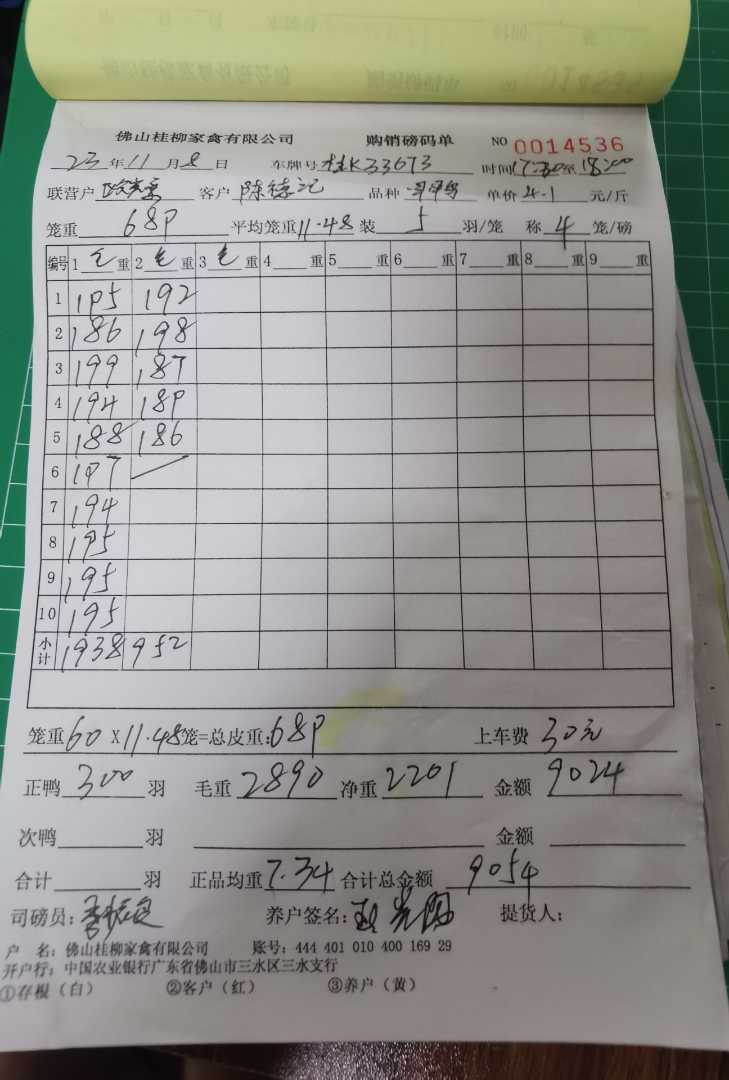 佛山桂柳家禽有限公司 购销磅码单 NO 0014536
23 年 11 月 8 日 车牌号 桂K33673 时间 17:30至18:00
联营户 客户 陈德记 品种 单价 4.1 元/斤
笼重 689 平均笼重 11.48 装 5 羽/笼 称 4 笼/磅
编号 1 毛 重 2 毛 重 3 毛 重 4 重 5 重 6 重 7 重 8 重 9 重
1 195 192
2 186 198
3 199 187
4 194 189
5 188 186
6 197
7 194
8 195
9 195
10 195
小计 1938 952
笼重 60 X 11.48 笼=总皮重: 689 上车费 30元
正鸭 300 羽 毛重 2890 净重 2201 金额 9024
次鸭 羽 金额
合计 羽 正品均重 7.34 合计总金额 9054
司磅员: 养户签名: 提货人:
户 名: 佛山桂柳家禽有限公司 账号: 444 401 010 400 169 29
开户行: 中国农业银行广东省佛山市三水区三水支行
①存根（白） ②客户（红） ③养户（黄）